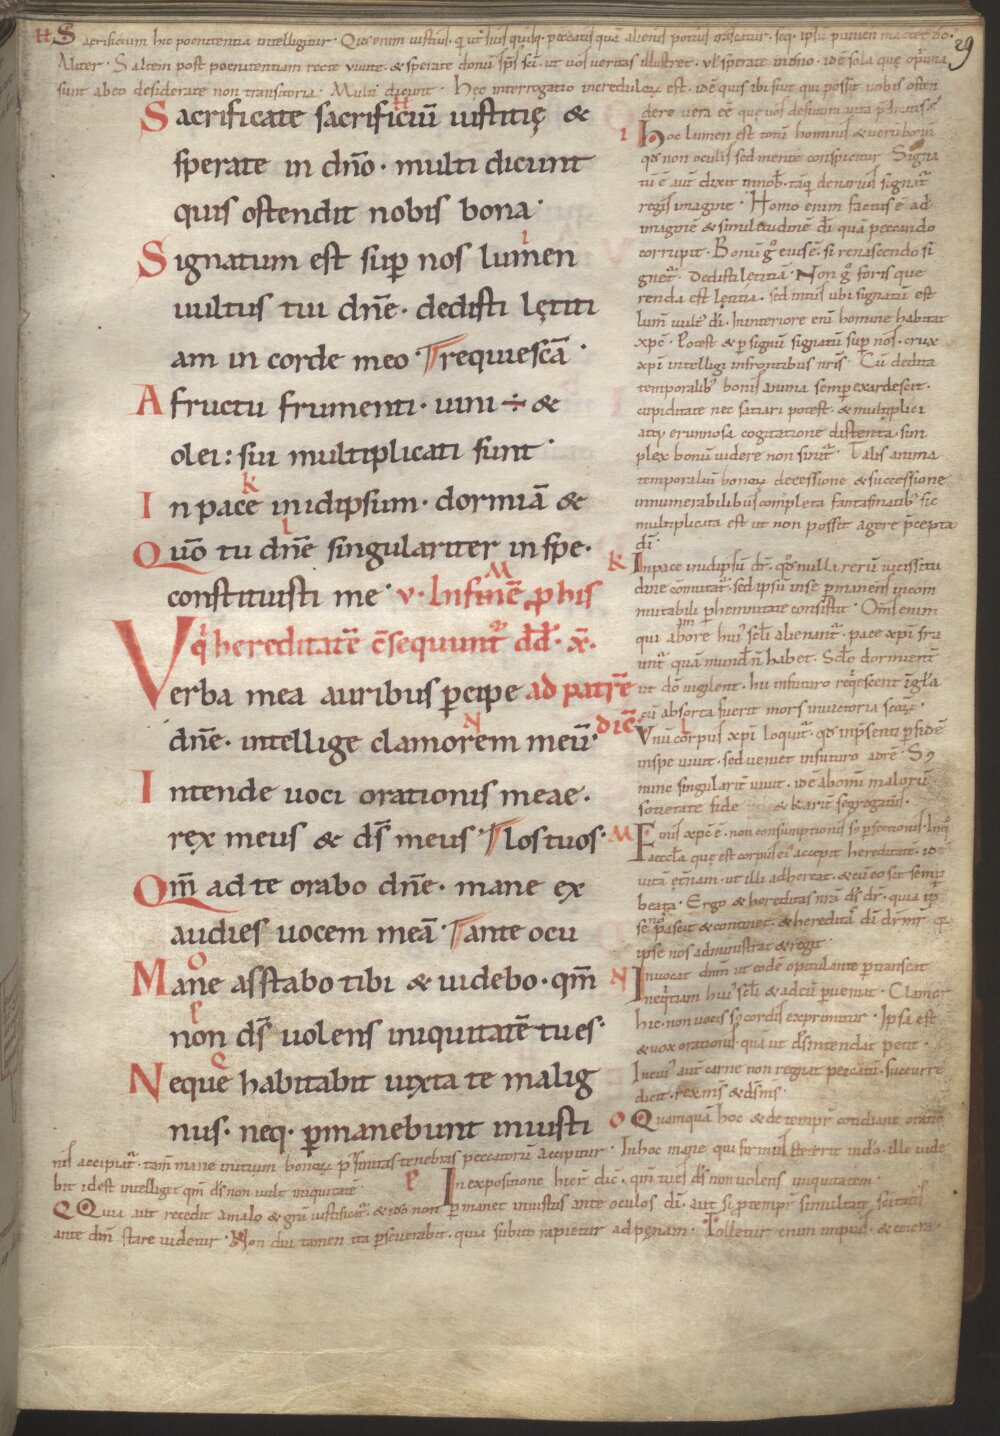 29
H Sacrificium hic poenitentia intelligitur · Quid enim iustius · q̄ ut suis quisq· peccatis quā alienis potius irascatur · seq· ipsū
Aliter · Saltem post poenitentiam recte uiuite · & sperate donū sp̄s sc̄i · ut uos ueritas illustret · ut sperate in dn̄o · idē sola que
sunt ab eo desiderate non transitoria · Multi dicunt · Hęc interrogatio increduloꝝ est · idē quis ibi fuit qui possit uobis osten
Sacrificate sacrificiū iustitię &
sperate in dn̄o · multi dicunt
quis ostendit nobis bona ·
Signatum est sup̄ nos lumen
uultus tui dn̄e · dedisti lętiti
am in corde meo · requiescā ·
A fructu frumenti · uini ÷ &
olei : sui multiplicati sunt ·
In pace in idipsum · dormiā &
Quō tu dn̄e singulariter in spe ·
constituisti me · v · In finē p his
q̄ hereditatē c̄sequunt̄ dd̄ · x̄ ·
Verba mea auribus pcipe ad patrē
dn̄e · intellige clamorem meū · dic̄
Intende uoci orationis meae ·
rex meus & ds̄ meus · los tuos ·
Qm̄ ad te orabo dn̄e · mane ex
audies uocem meā · ante ocu
Mane asstabo tibi & uidebo · qm̄
non ds̄ uolens iniquitatē tu es ·
Neque habitabit iuxta te malig
nus · neq · pmanebunt iniusti
dere uera eē quę uos de futura uita p̄dicatis
I Hoc lumen est totū hominis & uerū bonū
qd̄ non oculis sed mente conspicitur · Signa
tū ē aut̄ dixit in nob̄ · tāq̄ denarius signat̄
regis imagine · Homo enim factus ē ad
imaginē & similitudinē dī quā peccando
corrupit · Bonū g̊ eius ē · si renascendo si
gnet̄ · Dedisti lętitiā · Non g̊ foris que
renda est lętitia · sed intus ubi signatū est
lum̄ uult' dī · In interiore eni homine habitat
xp̄c · Potest & p signū signatū sup̄ nos · crux
xp̄i intelligi in frontibus nr̄is · Cū dedita
temporalib; bonis anima semp exardescit ·
cupiditate nec satiari potest · & multiplici
atq; erumnosa cogitatione distenta sim
plex bonū uidere non sinit̄ · Talis anima
temporaliū bonoꝝ decessione & successione
innumerabilibus completa fantasmatib; sic
multiplicata est ut non possit agere p̄cepta
dī ·
K In pace in idipsū dr̄ · qd̄ nulla rerū uicissitu
dine cōmutat̄ · sed ipsū in se pmanens incom
mutabili phennitate consistit · Om̄s enim
qui ab hui' scl̄i alienant̄ · pace xp̄i fru
unt̄ quā mund' n̄ habet · Sc̄lo dormient
ut dō uigilent · hii in futuro reqescent in gl̄a
cū absorta fuerit mors in uictoria
L Vnū corpus xp̄i loquit̄ · qd̄ in p̄senti p fidē
in spe uiuit · sed ueniet in futuro ad rē · S;
nunc singularit̄ uiuit · idē ab omī malorū
societate fide & karit̄ segregatus ·
M Finis xp̄c ē · non consumptionis s; pfectionis · In q̊
aeccl̄a quę est corpus ei' accepit hereditatē · idē
uitā ęt̄nam · ut illi adhereat · & cū eo sit semp
beata · Ergo & hereditas nr̄a ds̄ dr̄ · quia ip̄
se nos pascit & continet · & hereditas dī dr̄mr̄ quia
ipse nos administrat & regit
N Inuocat dn̄m ut eodē opitulante ptranseat
nequitiam hui' scl̄i & ad eū pueniat · Clamor
hic · non uocis s; cordis exprimitur · Ipsa est
& uox orationis · quā ut ds̄ intendat petit ·
In cui' aut̄ carne non regnat peccatū · succurre
dicit · rex m̄s & ds̄ m̄s ·
O Quamquā hoc & de tempr̄ cotidiane oratio
nis accipiat̄ · tam̄ mane initium bonoꝝ p' finitas tenebras peccatorū accipitur · In hoc mane qui firmus steterit in dō · ille uide
bit id est intelligit qm̄ ds̄ non uult iniquitatē · P In expositione hier̄ dic̄ · qm̄ tu es ds̄ non uolens iniquitatem ·
Q Quia aut̄ recedit a malo & gr̄a iustificat̄ · & ido non pmanet iniustus ante oculos dī · aut si p tempr̄ simultate scitatis
ante dm̄ stare uidetur · Non diu tamen ita pseuerabit · quia subito rapietur ad pęnam · Tolletur enim impius · & cetera ·